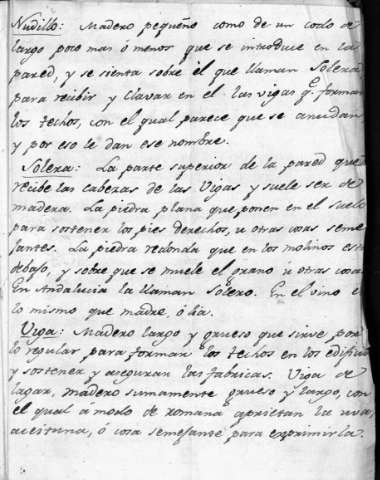 Nudillo: Madero pequeño como de un codo de
largo poco mas ó menos que se introduce en la
pared, y se sienta sobre el que llaman Solera
para recibir y clavar en el las vigas q.e forman
los techos, con el qual parece que se anudan
y por eso le dan ese nombre.
Solera: La parte superior de la pared que
recibe las cabezas de las Vigas y suele ser de
madera. La piedra plana que ponen en el suelo
para sostener los pies derechos, u otras cosas seme
jantes. La piedra redonda que en los molinos está
debajo, y sobre que se muele el grano ú otras cosas
En Andalucia la llaman Solero. En el vino e
lo mismo que madre, ó lia.
Viga: Madero largo y grueso que sirve por
lo regular, para formar los techos en los edificio
y sostener y asegurar las fabricas. Viga de
lagar, madero sumamente grueso y largo, con
el qual á modo de romana aprietan la uva,
aceituna, ó cosa semejante para exprimirla.